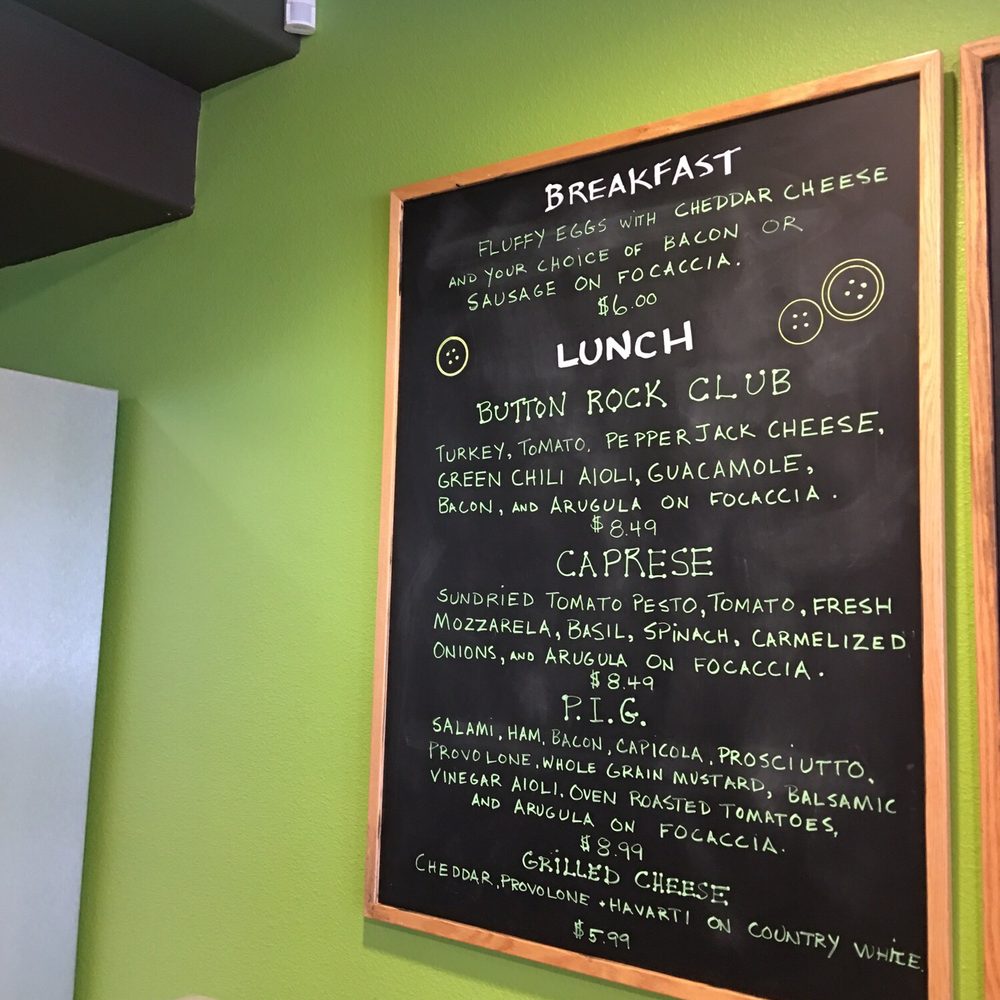 BREAKFAST
FLUFFY EGGS WITH CHEDDAR CHEESE
AND YOUR CHOICE OF BACON OR
SAUSAGE ON FOCACCIA.
$6.00
LUNCH
BUTTON ROCK CLUB
TURKEY, TOMATO, PEPPERJACK CHEESE,
GREEN CHILI AIOLI, GUACAMOLE,
BACON, AND ARUGULA ON FOCACCIA.
$8.49
CAPRESE
SUNDRIED TOMATO PESTO, TOMATO, FRESH
MOZZARELA, BASIL, SPINACH, CARMELIZED
ONIONS, AND ARUGULA ON FOCACCIA.
$8.49
P.I.G.
SALAMI, HAM, BACON, CAPICOLA, PROSCIUTTO,
PROVOLONE, WHOLE GRAIN MUSTARD, BALSAMIC
VINEGAR AIOLI, OVEN ROASTED TOMATOES,
AND ARUGULA ON FOCACCIA.
$8.99
GRILLED CHEESE
CHEDDAR, PROVOLONE + HAVARTI ON COUNTRY WHITE
$5.99